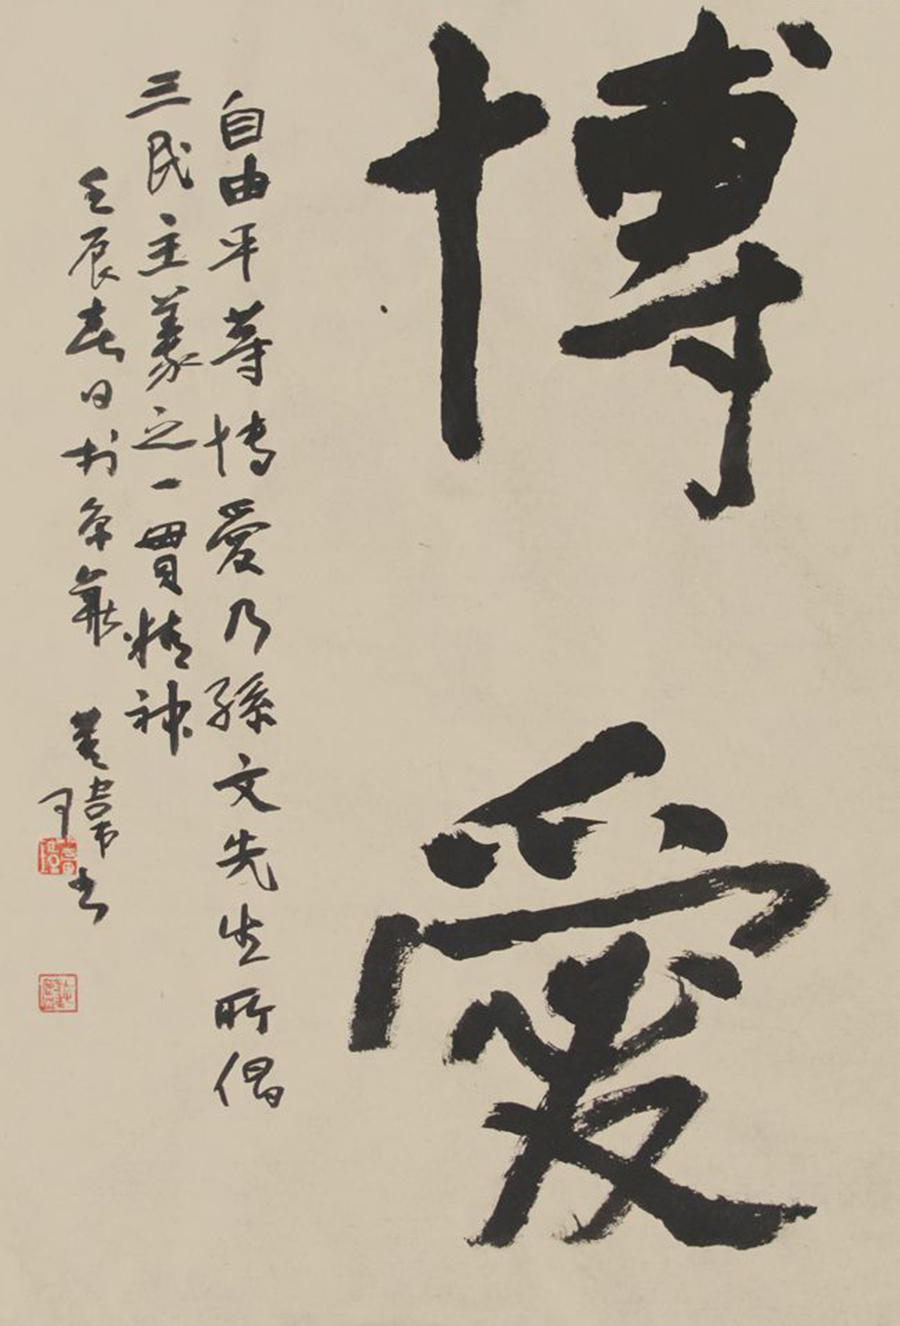 博愛
自由平等博愛乃孫文先生所倡
三民主義之一貫精神
壬辰春日於京華 黃瑋書